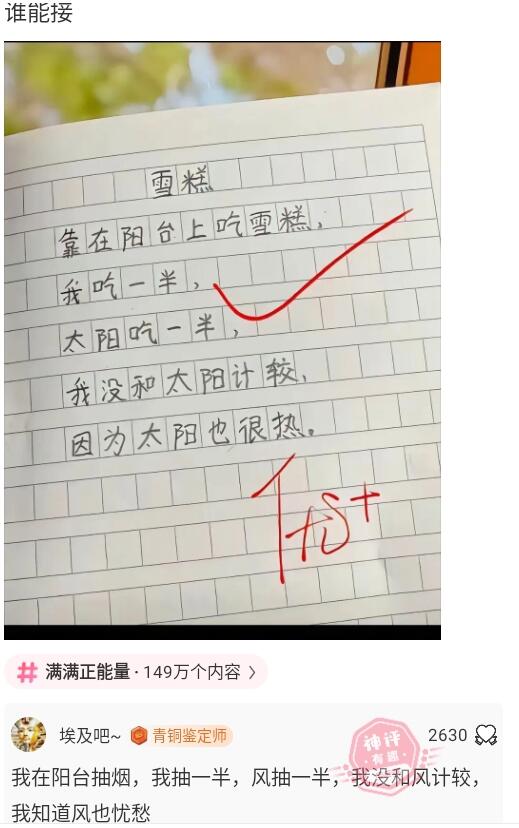 谁能接
雪糕
靠在阳台上吃雪糕，
我吃一半，
太阳吃一半，
我没和太阳计较，
因为太阳也很热。
优+
满满正能量·149万个内容
埃及吧~
青铜鉴定师
2630
神评
有趣
我在阳台抽烟，我抽一半，风抽一半，我没和风计较，
我知道风也忧愁